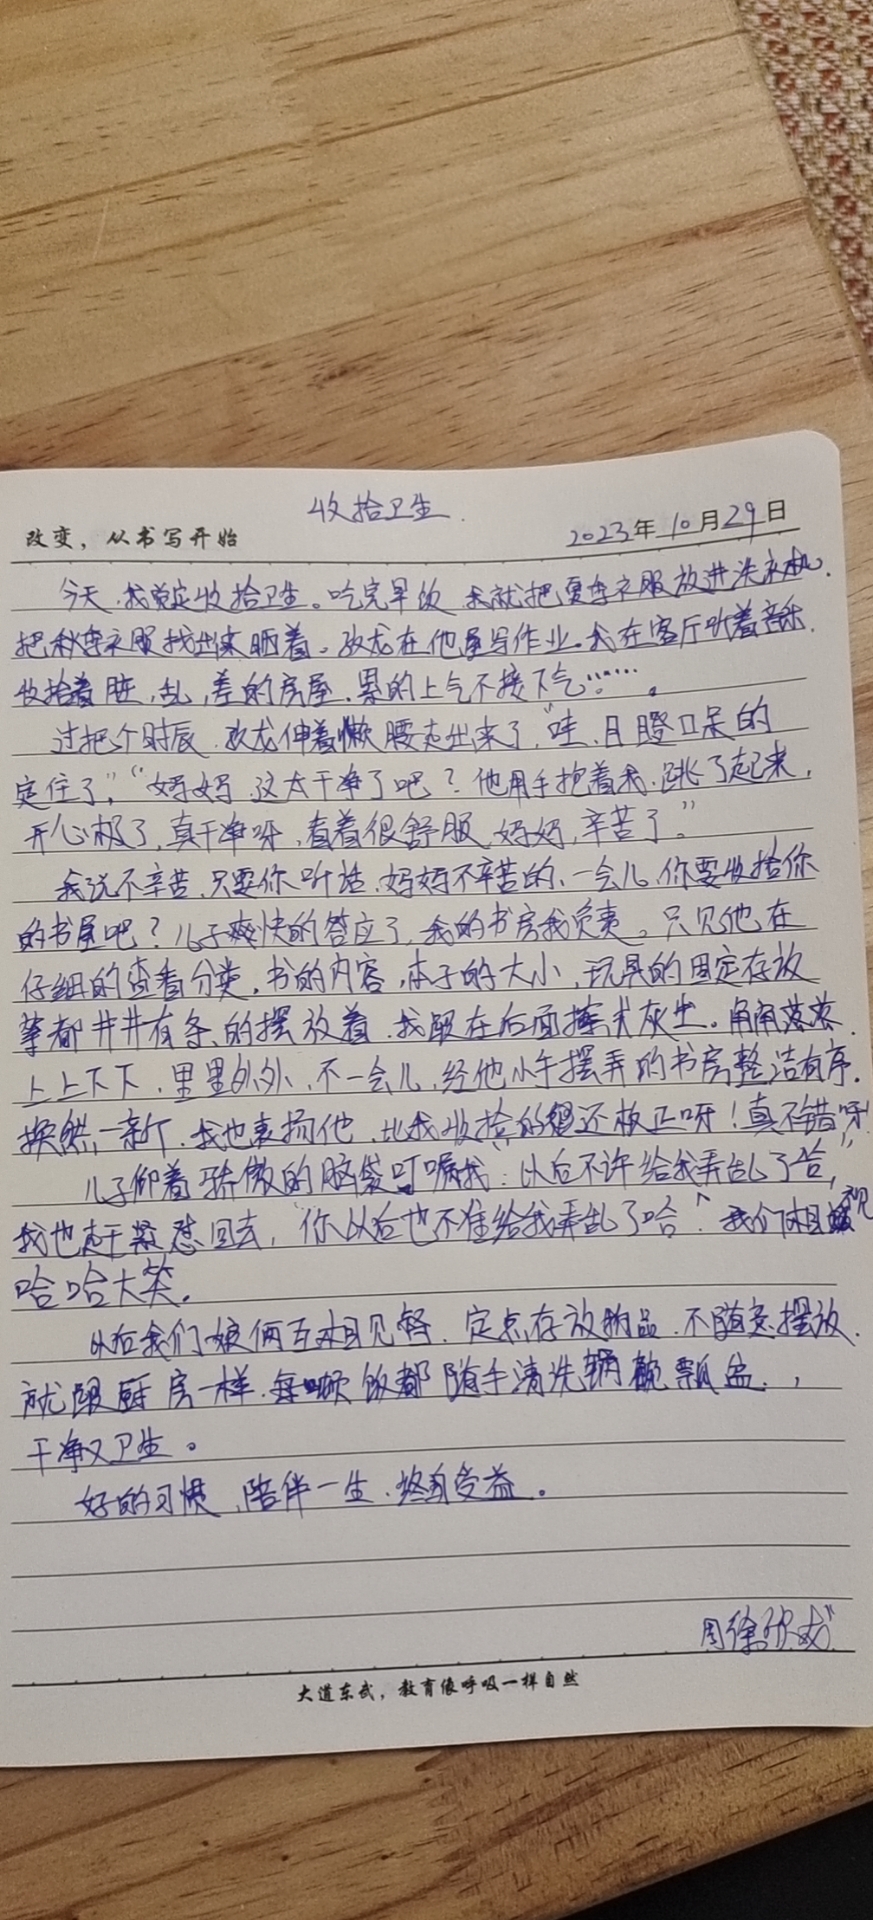 收拾卫生.
改变，从书写开始
2023年10月29日
今天,我觉定收拾卫生。吃完早饭 我就把夏季衣服放进洗衣机.
把秋季衣服找出来晒着。欢龙在他屋写作业.我在客厅听着音乐.
收拾着脏,乱,差的房屋.累的上气不接下气……。
过把个时辰.欢龙伸着懒腰走出来了,"哇,目瞪口呆的
定住了"，"妈妈,这太干净了吧?他用手抱着我.跳了起来,
开心极了,真干净呀,看着很舒服,妈妈,辛苦了。"
我说不辛苦,只要你听话,妈妈不辛苦的,一会儿,你要收拾你
的书屋吧?儿子爽快的答应了,我的书房我负责。只见他在
仔细的查看分类.书的内容,本子的大小,玩具的固定存放
等都井井有条的摆放着.我跟在后面擦灰尘。角角落落.
上上下下.里里外外.不一会儿,经他小手摆弄的书房整洁有序.
焕然一新.我也表扬他.比我收拾的还板正呀!真不错呀!
儿子仰着骄傲的脑袋叮嘱我:以后不许给我弄乱了哈,"
我也赶紧怼回去,"你以后也不准给我弄乱了哈"我们相视
哈哈大笑。
以后我们娘俩互相见督.定点存放物品.不随意摆放.
就跟厨房一样.每顿饭都随手清洗锅碗瓢盆.,
干净又卫生。
好的习惯,陪伴一生.终身受益。
大道东武，教育像呼吸一样自然